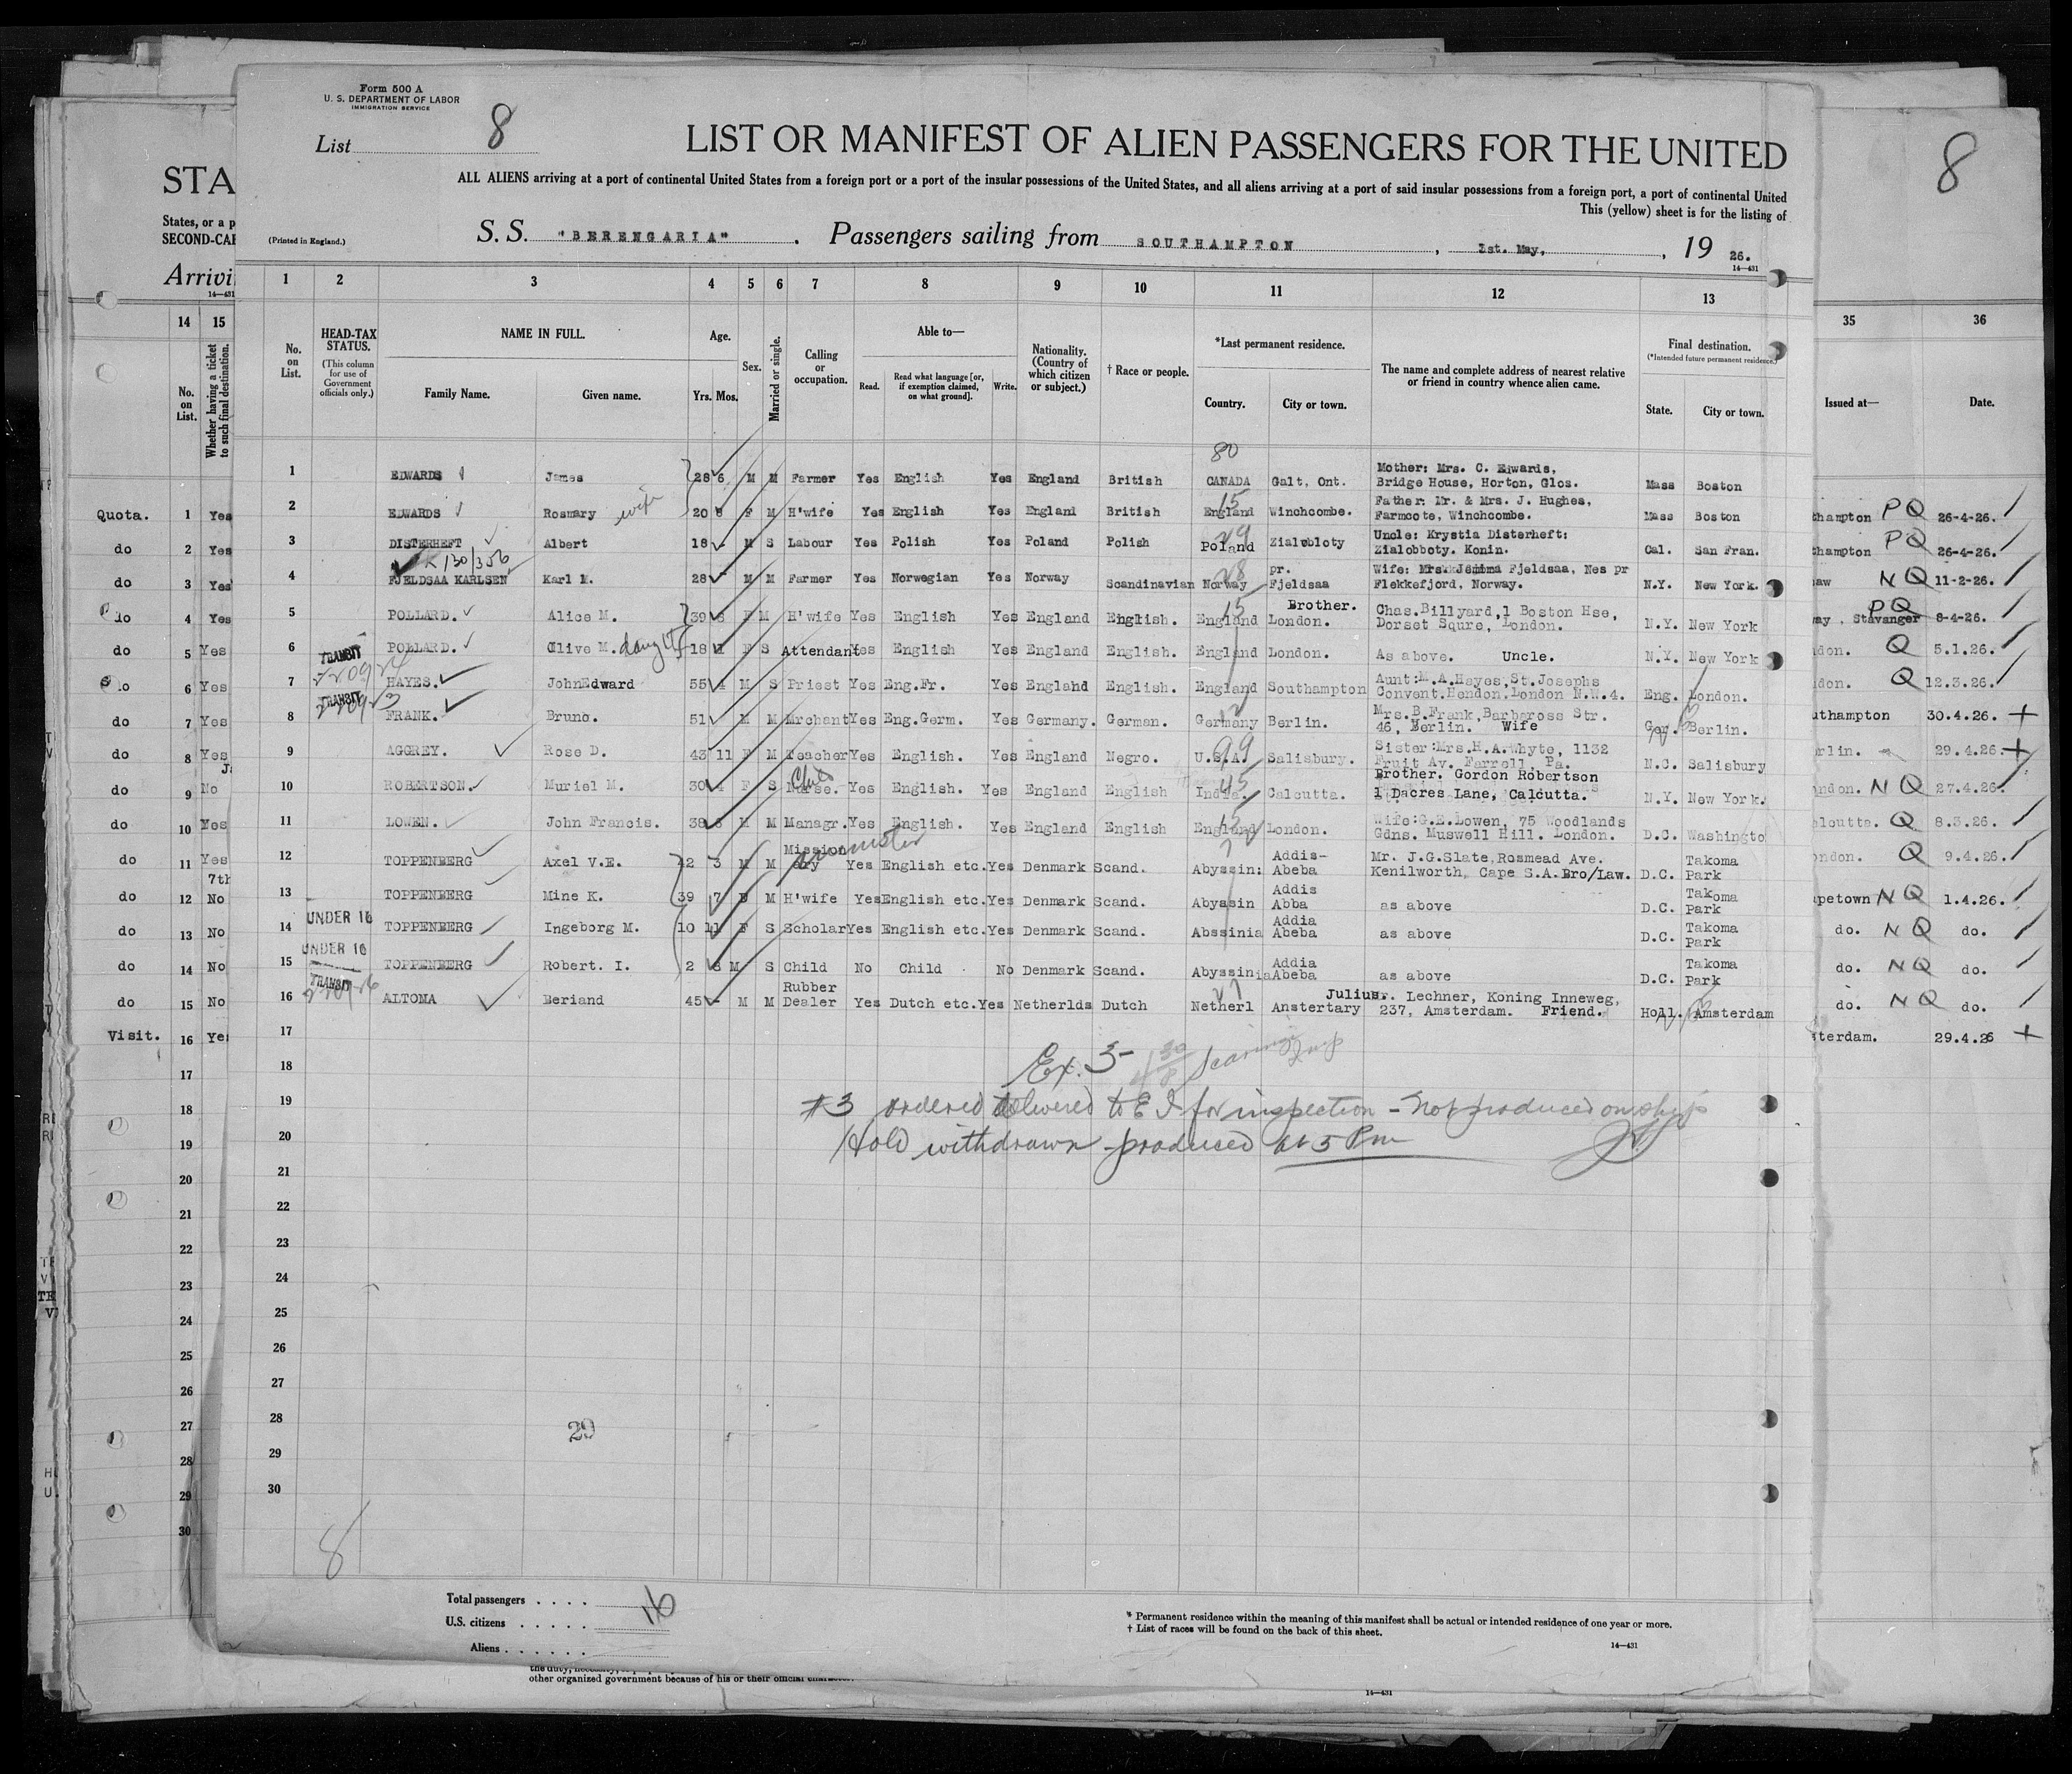 Form 500 A
U. S. DEPARTMENT OF LABOR
IMMIGRATION SERVICE
List 8
LIST OR MANIFEST OF ALIEN PASSENGERS FOR THE UNITED
STA
8
ALL ALIENS arriving at a port of continental United States from a foreign port or a port of the insular possessions of the United States, and all aliens arriving at a port of said insular possessions from a foreign port, a port of continental United
States, or a p
This (yellow) sheet is for the listing of
SECOND-CAB
(Printed in England.)
S. S. "BERENGARIA". Passengers sailing from SOUTHAMPTON, 1st. May, 19 26.
14—431
Arrivi
14—431
1 2 3 4 5 6 7 8 9 10 11 12 13
14 15 35 36
No. on List.
HEAD-TAX STATUS. (This column for use of Government officials only.)
NAME IN FULL.
Family Name. Given name.
Age. Yrs. Mos.
Sex.
Married or single.
Calling or occupation.
Able to—
Read. Read what language [or, if exemption claimed, on what ground]. Write.
Nationality. (Country of which citizen or subject.)
† Race or people.
*Last permanent residence.
Country. City or town.
The name and complete address of nearest relative or friend in country whence alien came.
Final destination.
(*Intended future permanent residence.)
State. City or town.
No. on List.
Whether having a ticket to such final destination.
Issued at— Date.
1 EDWARDS James 28 6 M M Farmer Yes English Yes England British 80 CANADA Galt, Ont. Mother: Mrs. C. Edwards, Bridge House, Horton, Glos. Mass Boston
2 EDWARDS Rosmary wife 20 8 F M H'wife Yes English Yes England British 15 England Winchcombe. Father: Mr. & Mrs. J. Hughes, Farmcote, Winchcombe. Mass Boston
3 DISTERHEFT Albert 18 - M S Labour Yes Polish Yes Poland Polish Poland Zialobloty Uncle: Krystia Disterheft: Zialobboty. Konin. Cal. San Fran.
4 130/356 FJELDSAA KARLSEN Karl M. 28 - M M Farmer Yes Norwegian Yes Norway Scandinavian 28 Norway pr. Fjeldsaa Wife: Mrs. Jemima Fjeldsaa, Nes pr Flekkefjord, Norway. N.Y. New York.
5 POLLARD. Alice M. 39 8 F M H'wife Yes English Yes England English. 15 England London. Brother. Chas. Billyard, 1 Boston Hse, Dorset Squre, London. N.Y. New York
6 POLLARD. Olive M. daught 18 1 F S Attendant Yes English Yes England English. England London. As above. Uncle. N.Y. New York
7 TRANSIT HAYES. JohnEdward 55 4 M S Priest Yes Eng.Fr. Yes Englahd English. England Southampton Aunt:M.A.Hayes,St.Josephs Convent.Hendon,London N.W.4. Eng. London.
8 TRANSIT FRANK. Bruno. 51 M M Mrchant Yes Eng.Germ. Yes Germany. German. Germany Berlin. Mrs.B.Frank,Barbaross Str. 46, Berlin. Wife Ger. Berlin.
9 AGGREY. Rose D. 43 11 F M Teacher Yes English. Yes England Negro. 99 U.S.A. Salisbury. Sister:Mrs.H.A.Whyte, 1132 Fruit Av. Farroll, Pa. N.C. Salisbury
10 ROBERTSON. Muriel M. 30 4 F S Nurse. Yes English. Yes England English 45 India. Calcutta. Brother. Gordon Robertson 1 Dacres Lane, Calcutta. N.Y. New York.
11 LOWEN. John Francis. 38 8 M M Managr. Yes English. Yes England English 15 England London. Wife:G.E.Lowen, 75 Woodlands Gdns. Muswell Hill. London. D.C. Washingto
12 TOPPENBERG Axel V.E. 42 3 M M Missionary minister Yes English etc. Yes Denmark Scand. Abyssin: Addis-Abeba Mr. J.G.Slate,Rosmead Ave. Kenilworth, Cape S.A.Bro/Law. D.C. Takoma Park
13 TOPPENBERG Mine K. 39 7 F M H'wife Yes English etc. Yes Denmark Scand. Abyssin Addis Abba as above D.C. Takoma Park
14 UNDER 16 TOPPENBERG Ingeborg M. 10 11 F S Scholar Yes English etc. Yes Denmark Scand. Abssinia Addia Abeba as above D.C. Takoma Park
15 UNDER 16 TOPPENBERG Robert. I. 2 8 M S Child No Child No Denmark Scand. Abyssinia Addia Abeba as above D.C. Takoma Park
16 TRANSIT ALTOMA Beriand 45 - M M Rubber Dealer Yes Dutch etc. Yes Netherlds Dutch Netherl Amstertary Julius. Lechner, Koning Inneweg, 237, Amsterdam. Friend. Holl. Amsterdam
Quota. 1 Yes thampton PQ 26-4-26.
do 2 Yes thampton PQ 26-4-26.
do 3 Yes aw NQ 11-2-26.
do 4 Yes way, Stavanger PQ 8-4-26.
do 5 Yes don. Q 5.1.26.
do 6 Yes don. Q 12.3.26.
do 7 Yes uthampton 30.4.26. +
do 8 Yes rlin. 29.4.26. +
do 9 No ondon. NQ 27.4.26.
do 10 Yes lcutta. Q 8.3.26.
do 11 Yes ondon. Q 9.4.26.
7th
do 12 No petown NQ 1.4.26.
do 13 No do. NQ do.
do 14 No do. NQ do.
do 15 No do. NQ do.
Visit. 16 Yes terdam. 29.4.26 +
17
18
19
20
21
22
23
24
25
26
27
28
29
30
Ex. 3
#3 ordered delivered to E I for inspection - Not produced on ship
Hold withdrawn - produced at 5 Pm
17
18
19
20
21
22
23
24
25
26
27
28
29
30
29
8
Total passengers . . . . 16
U.S. citizens . . . . .
Aliens . . . . . .
* Permanent residence within the meaning of this manifest shall be actual or intended residence of one year or more.
† List of races will be found on the back of this sheet.
14—431
other organized government because of his or their official character.
14—431